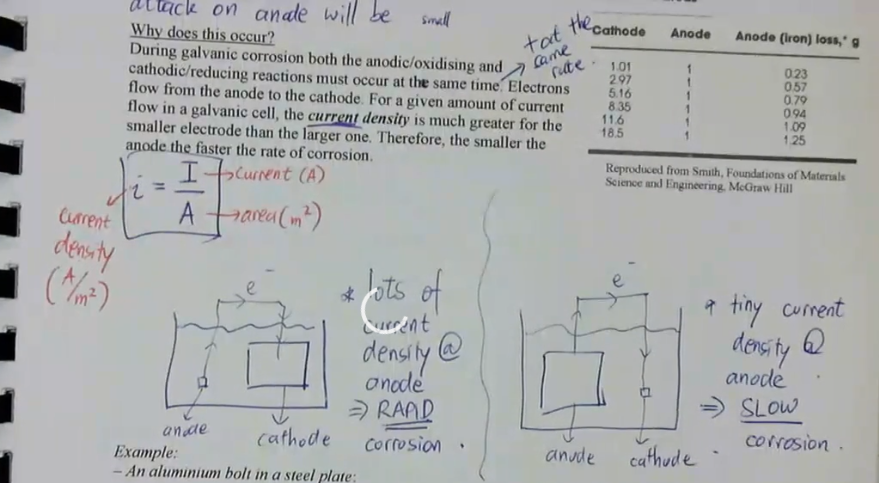 attack on anode will be small
Why does this occur?
During galvanic corrosion both the anodic/oxidising and
cathodic/reducing reactions must occur at the same time. Electrons
flow from the anode to the cathode. For a given amount of current
flow in a galvanic cell, the current density is much greater for the
smaller electrode than the larger one. Therefore, the smaller the
anode the faster the rate of corrosion.
+ at the
same
rate.
Cathode Anode Anode (iron) loss,* g
1.01 1 0.23
2.97 1 0.57
5.16 1 0.79
8.35 1 0.94
11.6 1 1.09
18.5 1 1.25
Reproduced from Smith, Foundations of Materials
Science and Engineering, McGraw Hill
i = I / A
current (A)
area (m²)
current
density
(A/m²)
e⁻
anode
cathode
* lots of
current
density @
anode
⇒ RAPID
corrosion.
e⁻
anode
cathode
* tiny current
density @
anode
⇒ SLOW
corrosion.
Example:
– An aluminium bolt in a steel plate: